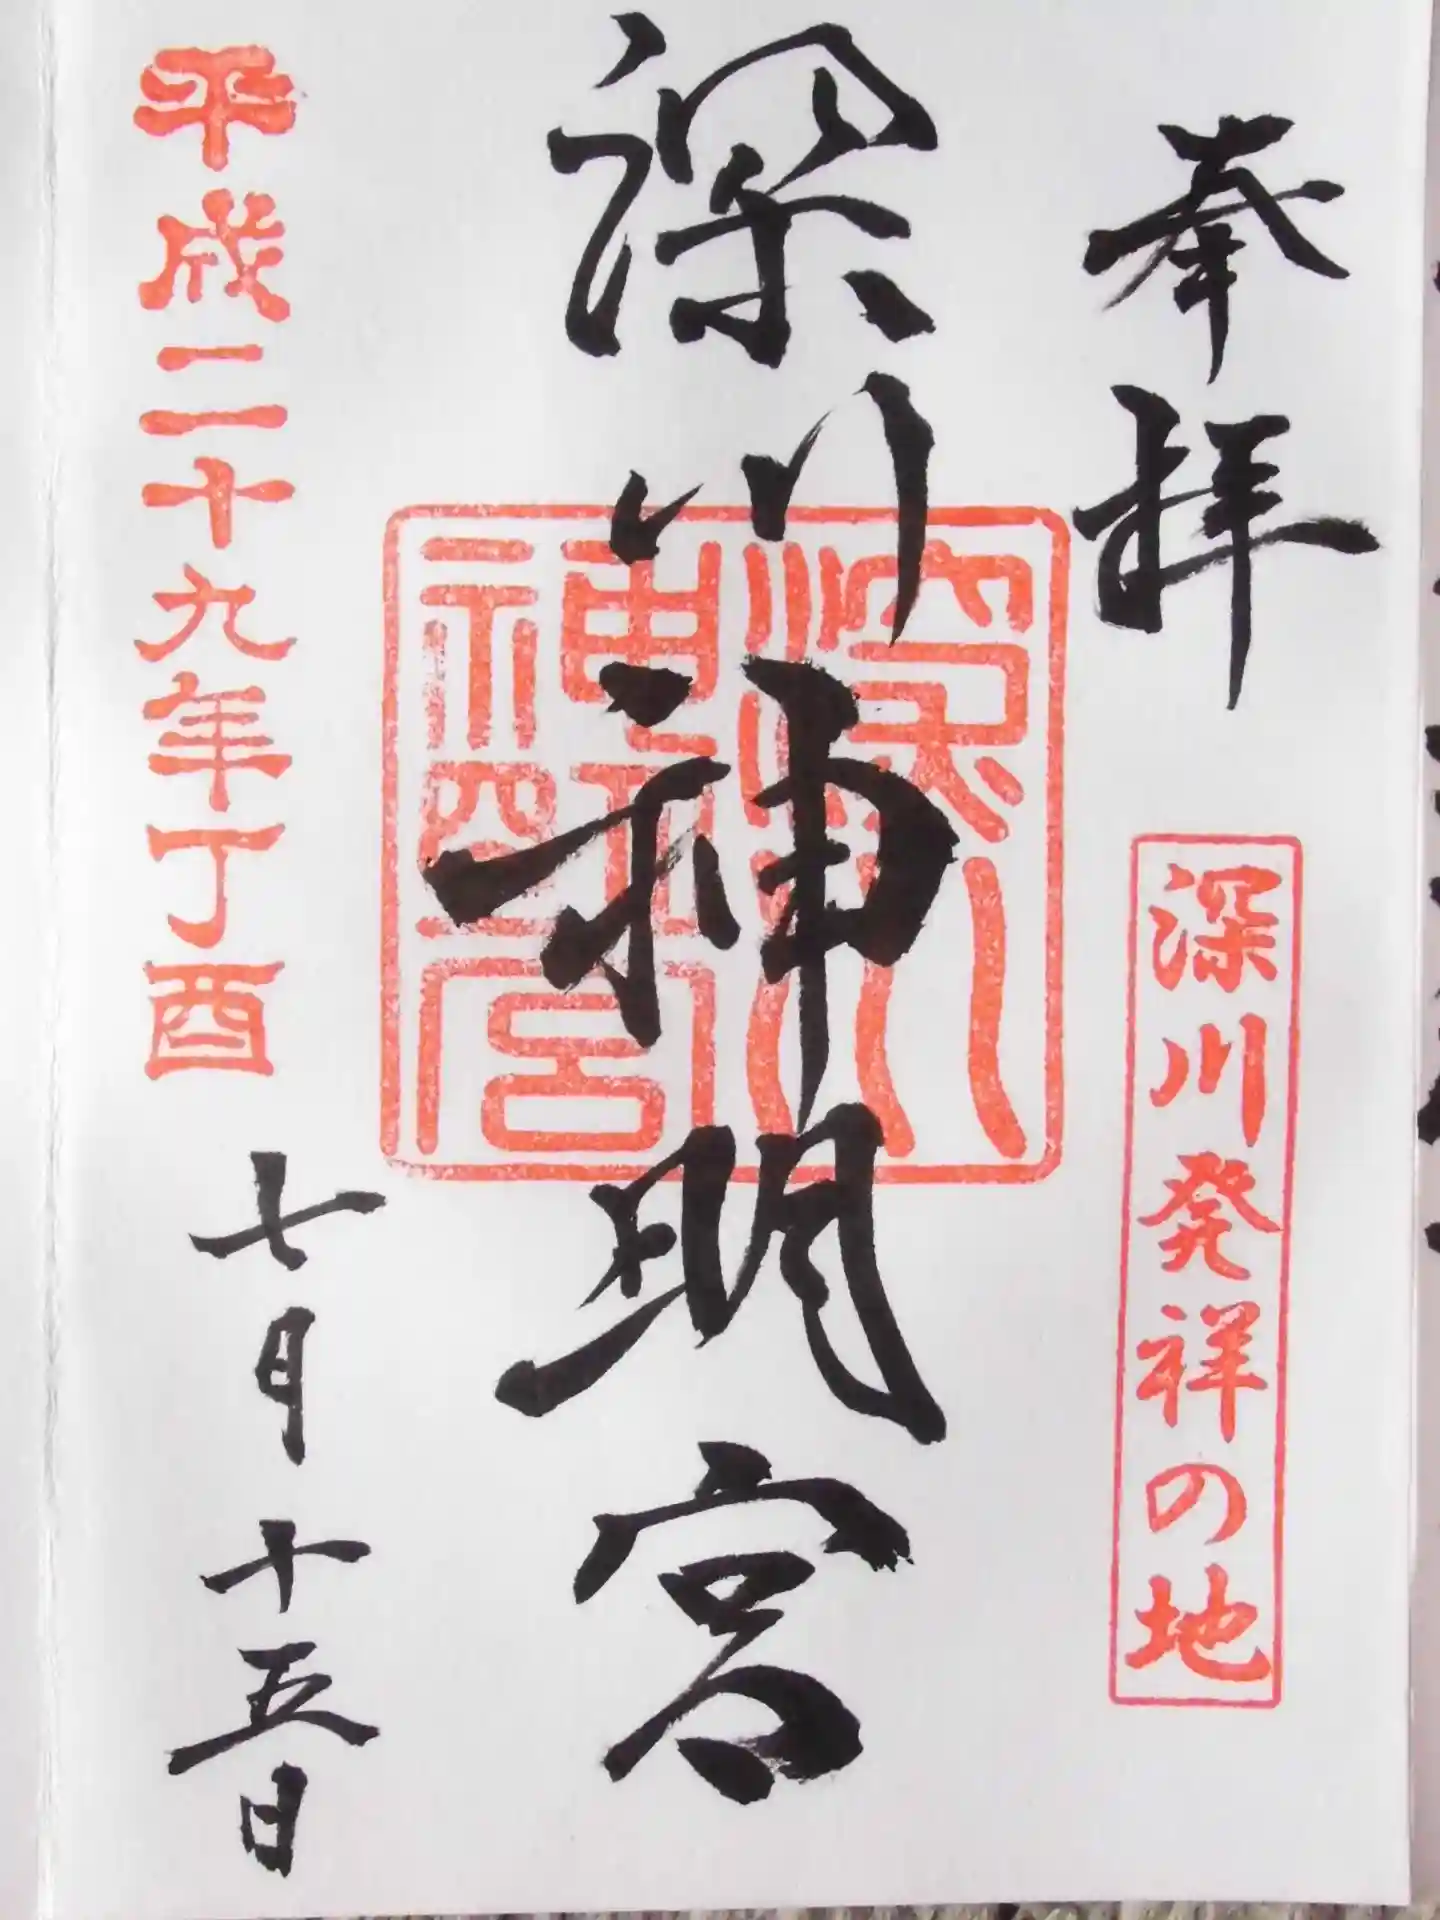 奉拝
深川発祥の地
深川神明宮
平成二十九年丁酉
七月十五日